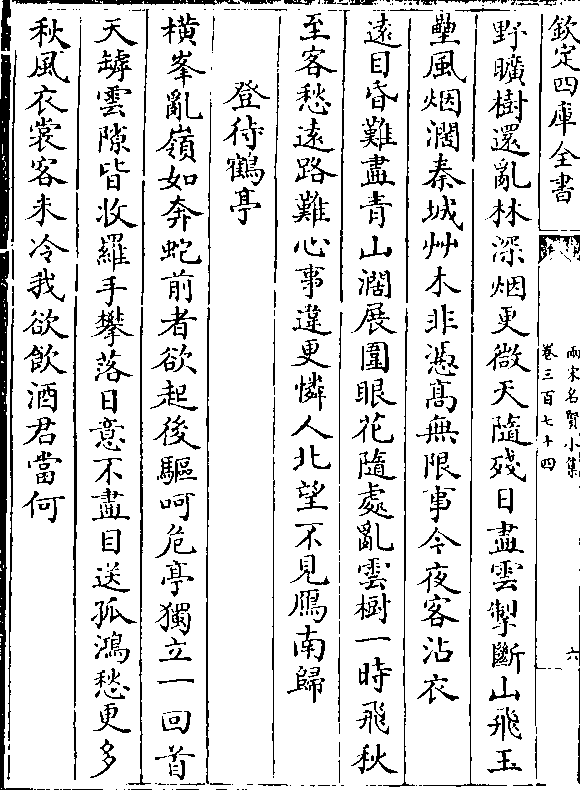 欽定四庫全書
兩宋名賢小集
卷三百七十四
六
野曠樹還亂林深烟更微天隨殘日盡雲掣斷山飛玉
壘風烟濶秦城艸木非憑髙無限事今夜客沾衣
遠目昏難盡青山濶展圍眼花隨處亂雲樹一時飛秋
至客愁遠路難心事違更憐人北望不見鴈南歸
登待鶴亭
横峯亂嶺如奔蛇前者欲起後驅呵危亭獨立一回首
天罅雲隙皆收羅手攀落日意不盡目送孤鴻愁更多
秋風衣裳客未冷我欲飲酒君當何